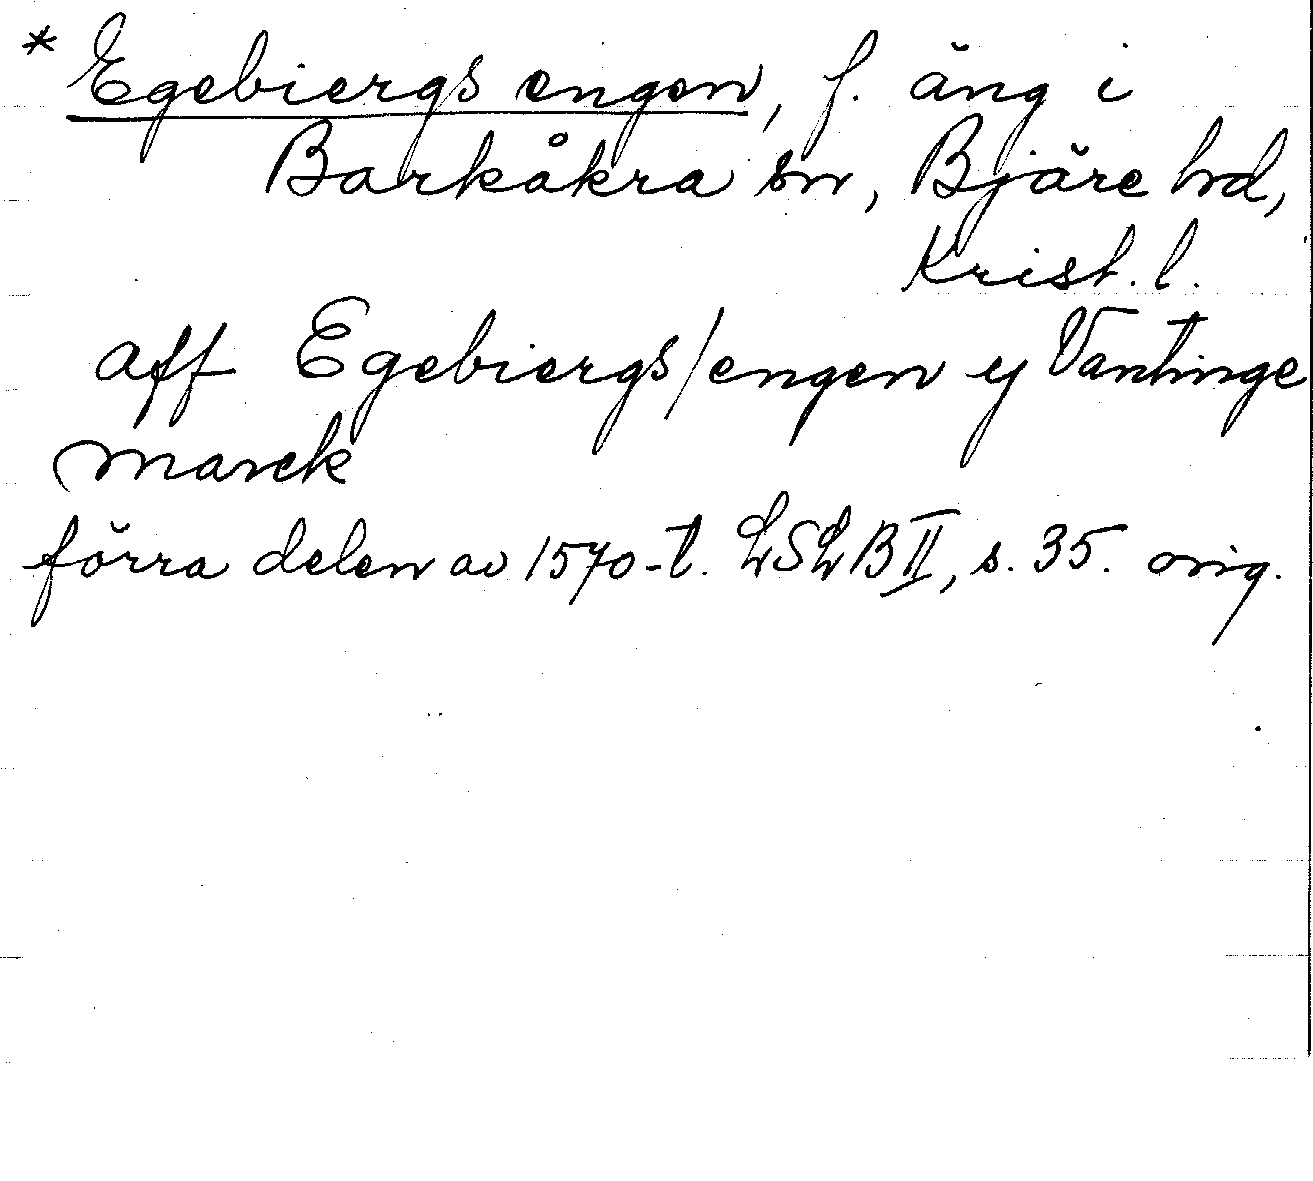 * Egebiergs engen, f. äng i
Barkåkra sn, Bjäre hd,
Krist. l.
aff Egebiergs/engen ij Vantinge
marck
förra delen av 1570-t. LSLB II, s. 35. orig.